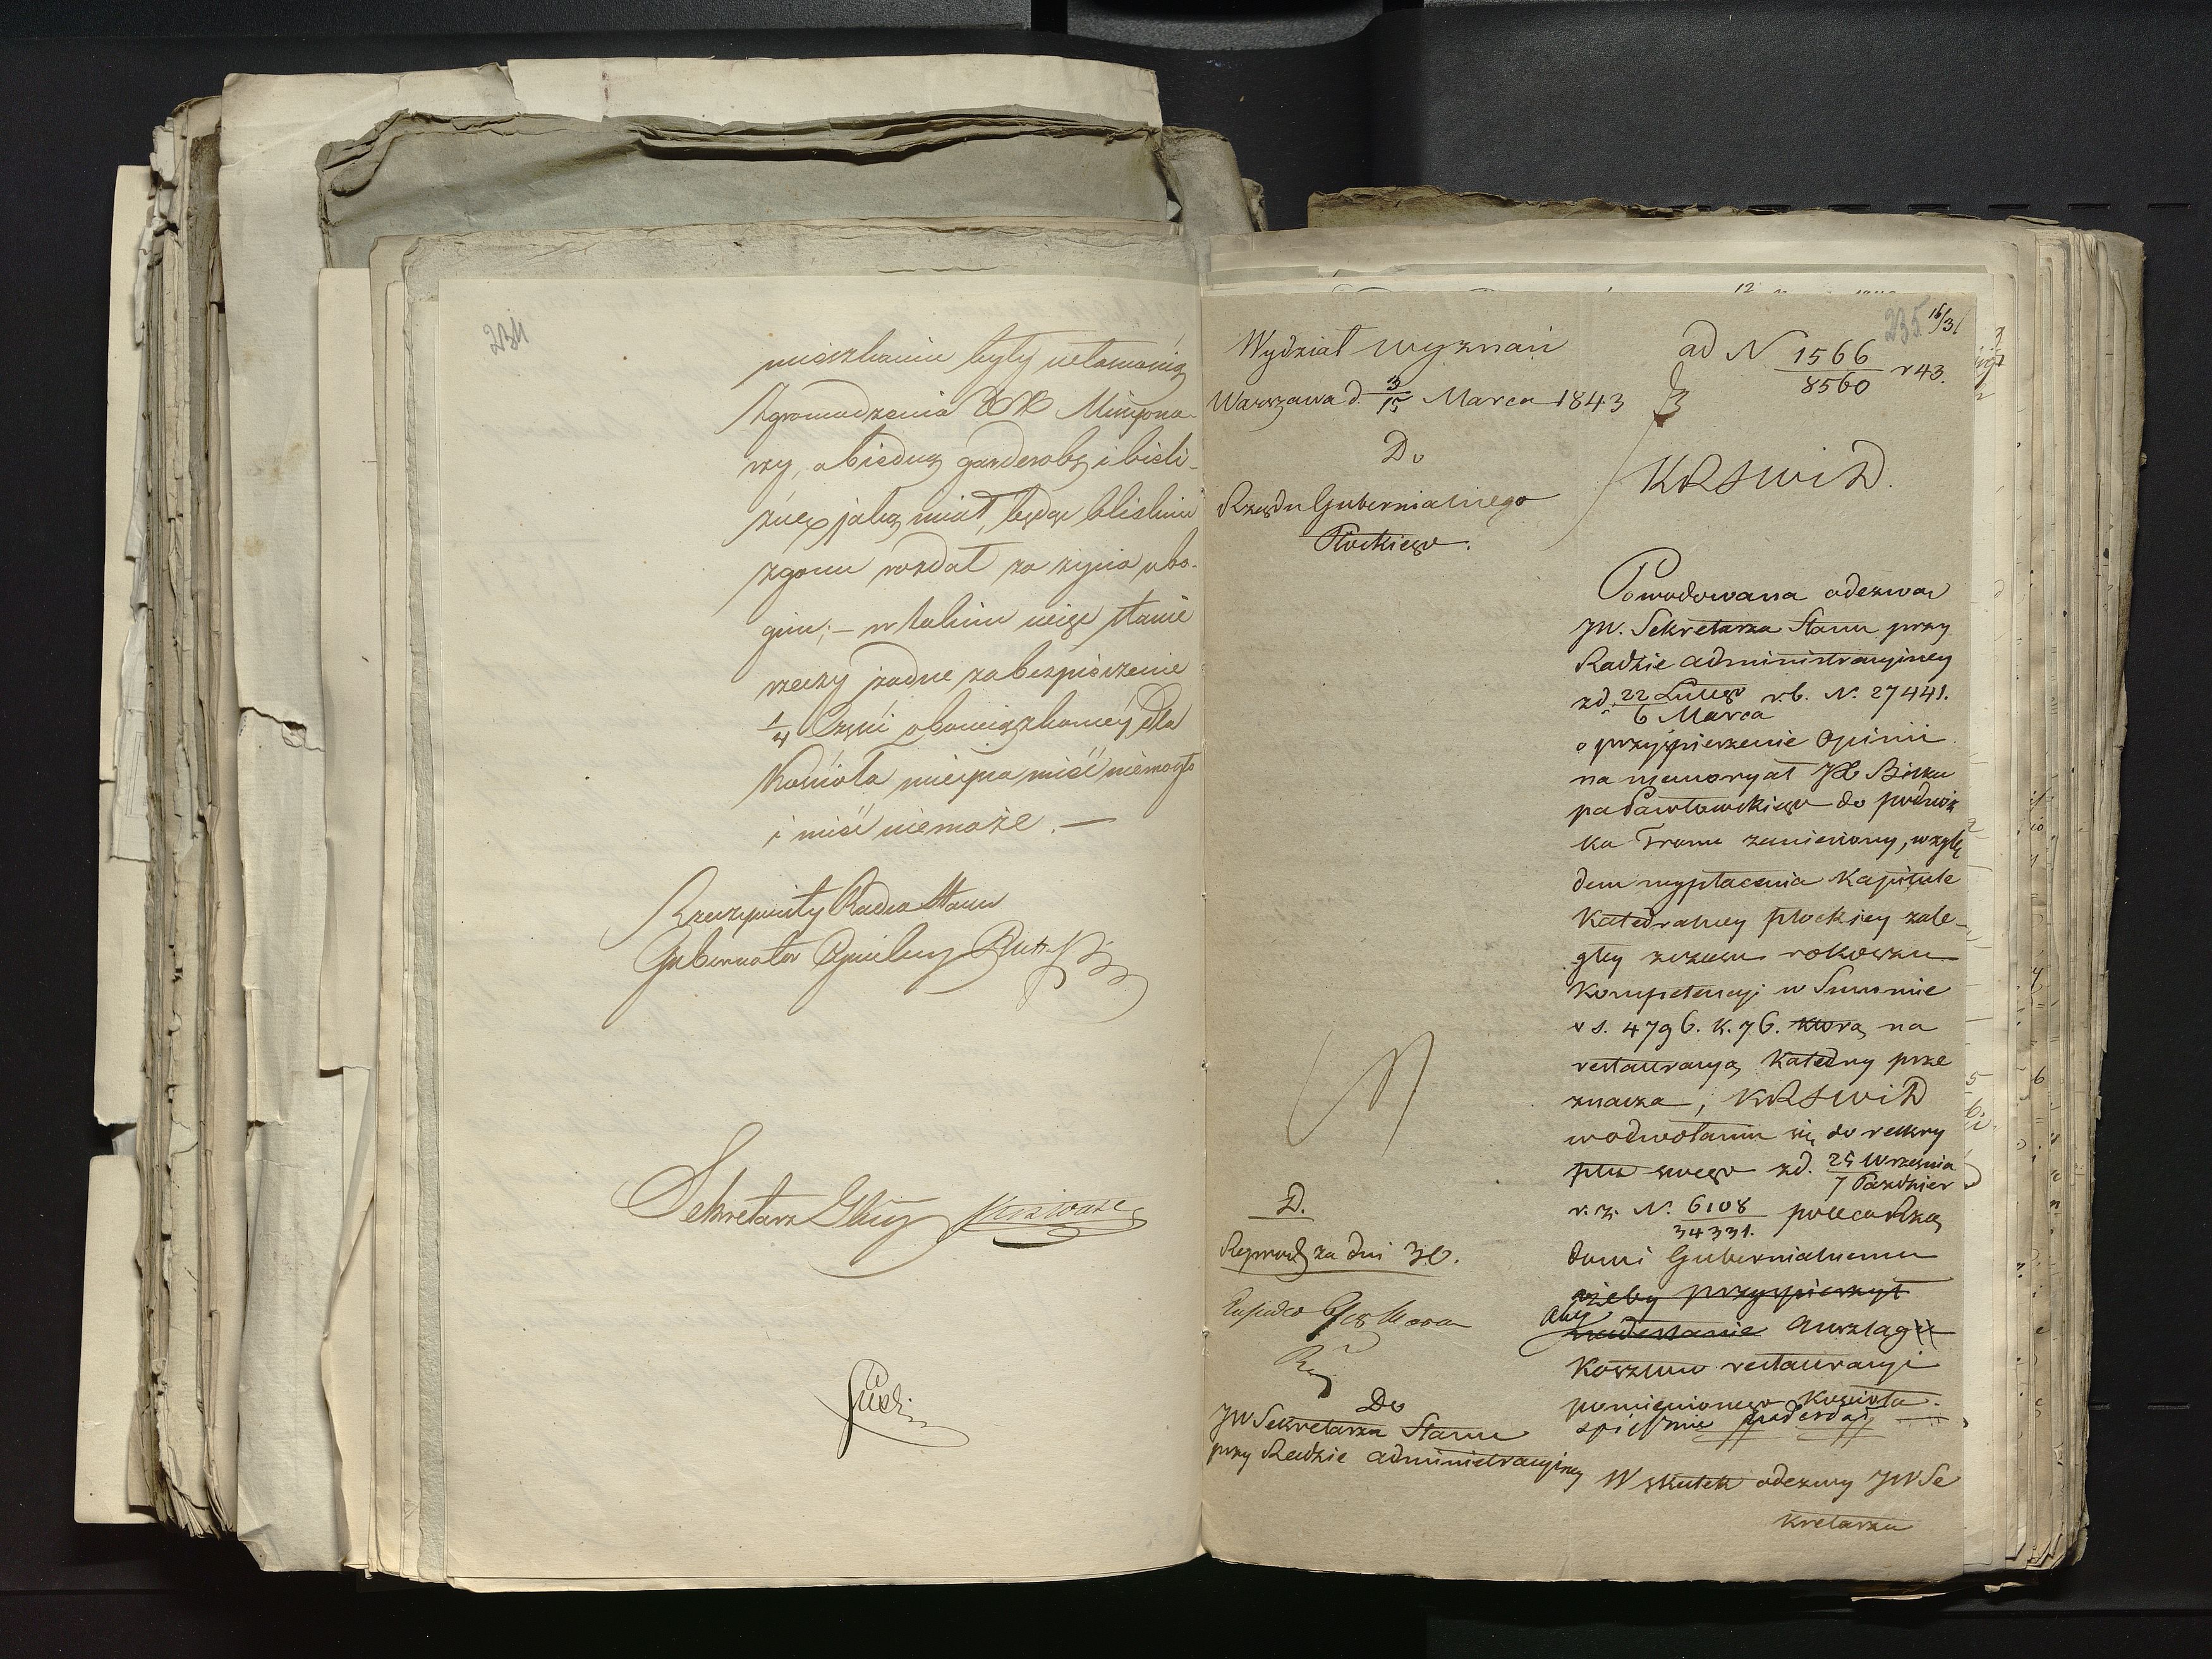 234
mieszkaniu były własnością
Zgromadzenia XX Missyona-
rzy, a biedną garderobę i bieli-
znę jaką miał, będąc bliskim
zgonu rozdał za życia ubo-
gim; – w takim więc stanie
rzeczy żadne zabezpieczenie
1/4 Części obowiązkowey dla
Kościoła mieysca mieć niemogło
i mieć niemoże. —
Rzeczywisty Radca Stanu
Gubernator Cywilny
Sekretarz
235
16/3
Wydział wyznań
Warszawa d. 3/15 Marca 1843
Do
Rządu Gubernialnego
Płockiego.
ad N 1566/8560 r 43.
KRSWiD.
Powodowana odezwą
JW. Sekretarza Stanu przy
Radzie administracyiney
z d. 22 Lutego/6 Marca r. b. N. 27441.
o przyspieszenie Opinii
na memoryał JX Bisku
pa Pawłowskiego do podnóż
ka Tronu zaniesiony, wzglę
dem wypłacenia Kapitule
Katedralney płockiey zale-
głey zeszłego rokowego
Kompetencyi w Summie
r s. 4796. k. 76. którą na
restauracyą Katedry prze
znacza, KRSWiD
w odwołaniu się do reskry
ptu swego z d. 25 Września/7 Paździer
r. z. N. 6108/34331. poleca Rzą
dowi Gubernialnemu
ażeby przyspieszył
aby nadesłanie Anszlag
Kosztów restauracyi
pomienionego Kościoła.
spiesznie nadesłał
D.
Reprod. za dni 30.
Do
JW Sekretarza Stanu
przy Radzie administracyiney
W skutek odezwy JW Se
kretarza